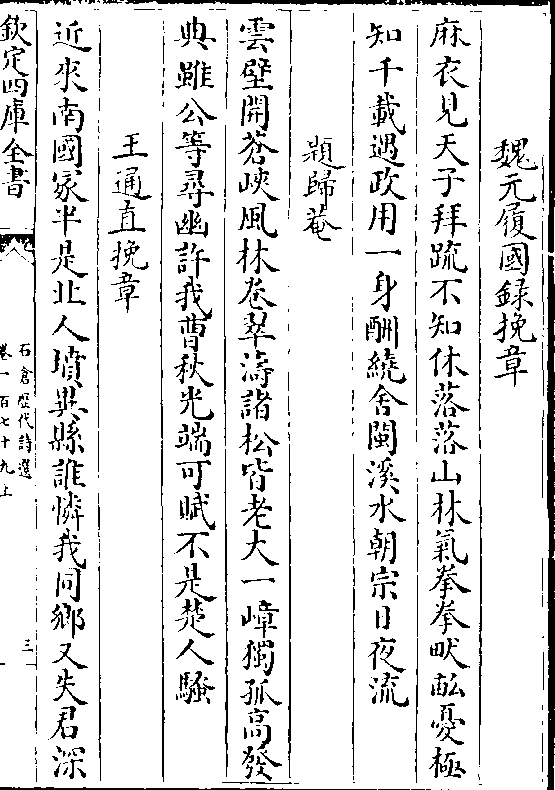 魏元履國錄挽章
麻衣見天子拜疏不知休落落山林氣拳拳畎畝憂極
知千載遇政用一身酬繞舍閩溪水朝宗日夜流
題歸菴
雲壁開蒼峽風林卷翠濤諸松皆老大一嶂獨孤高發
典雖公等尋幽許我曹秋光端可賦不是楚人騷
王通直挽章
近來南國冢半是北人墳異縣誰憐我同鄉又失君深
欽定四庫全書
石倉歷代詩選
卷一百七十九上
三